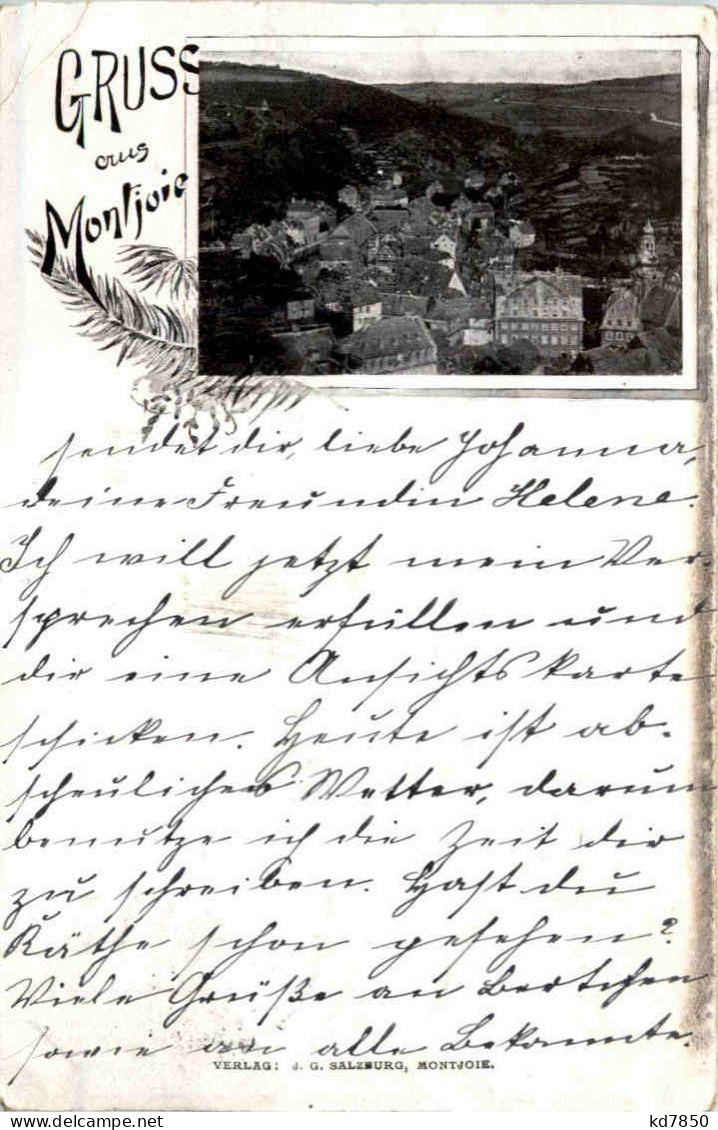 GRUSS
aus
Montjoie
sendet dir, liebe Johanna,
deine Freundin Helene.
Ich will jetzt mein Ver-
sprechen erfüllen und
dir eine Ansichtskarte
schicken. Heute ist ab-
scheuliches Wetter, darum
benutze ich die Zeit dir
zu schreiben. Hast du
Käthe schon gesehen?
Viele Grüße an Bertchen
sowie an alle Bekannte.
VERLAG: J. G. SALZBURG, MONTJOIE.
kd7850